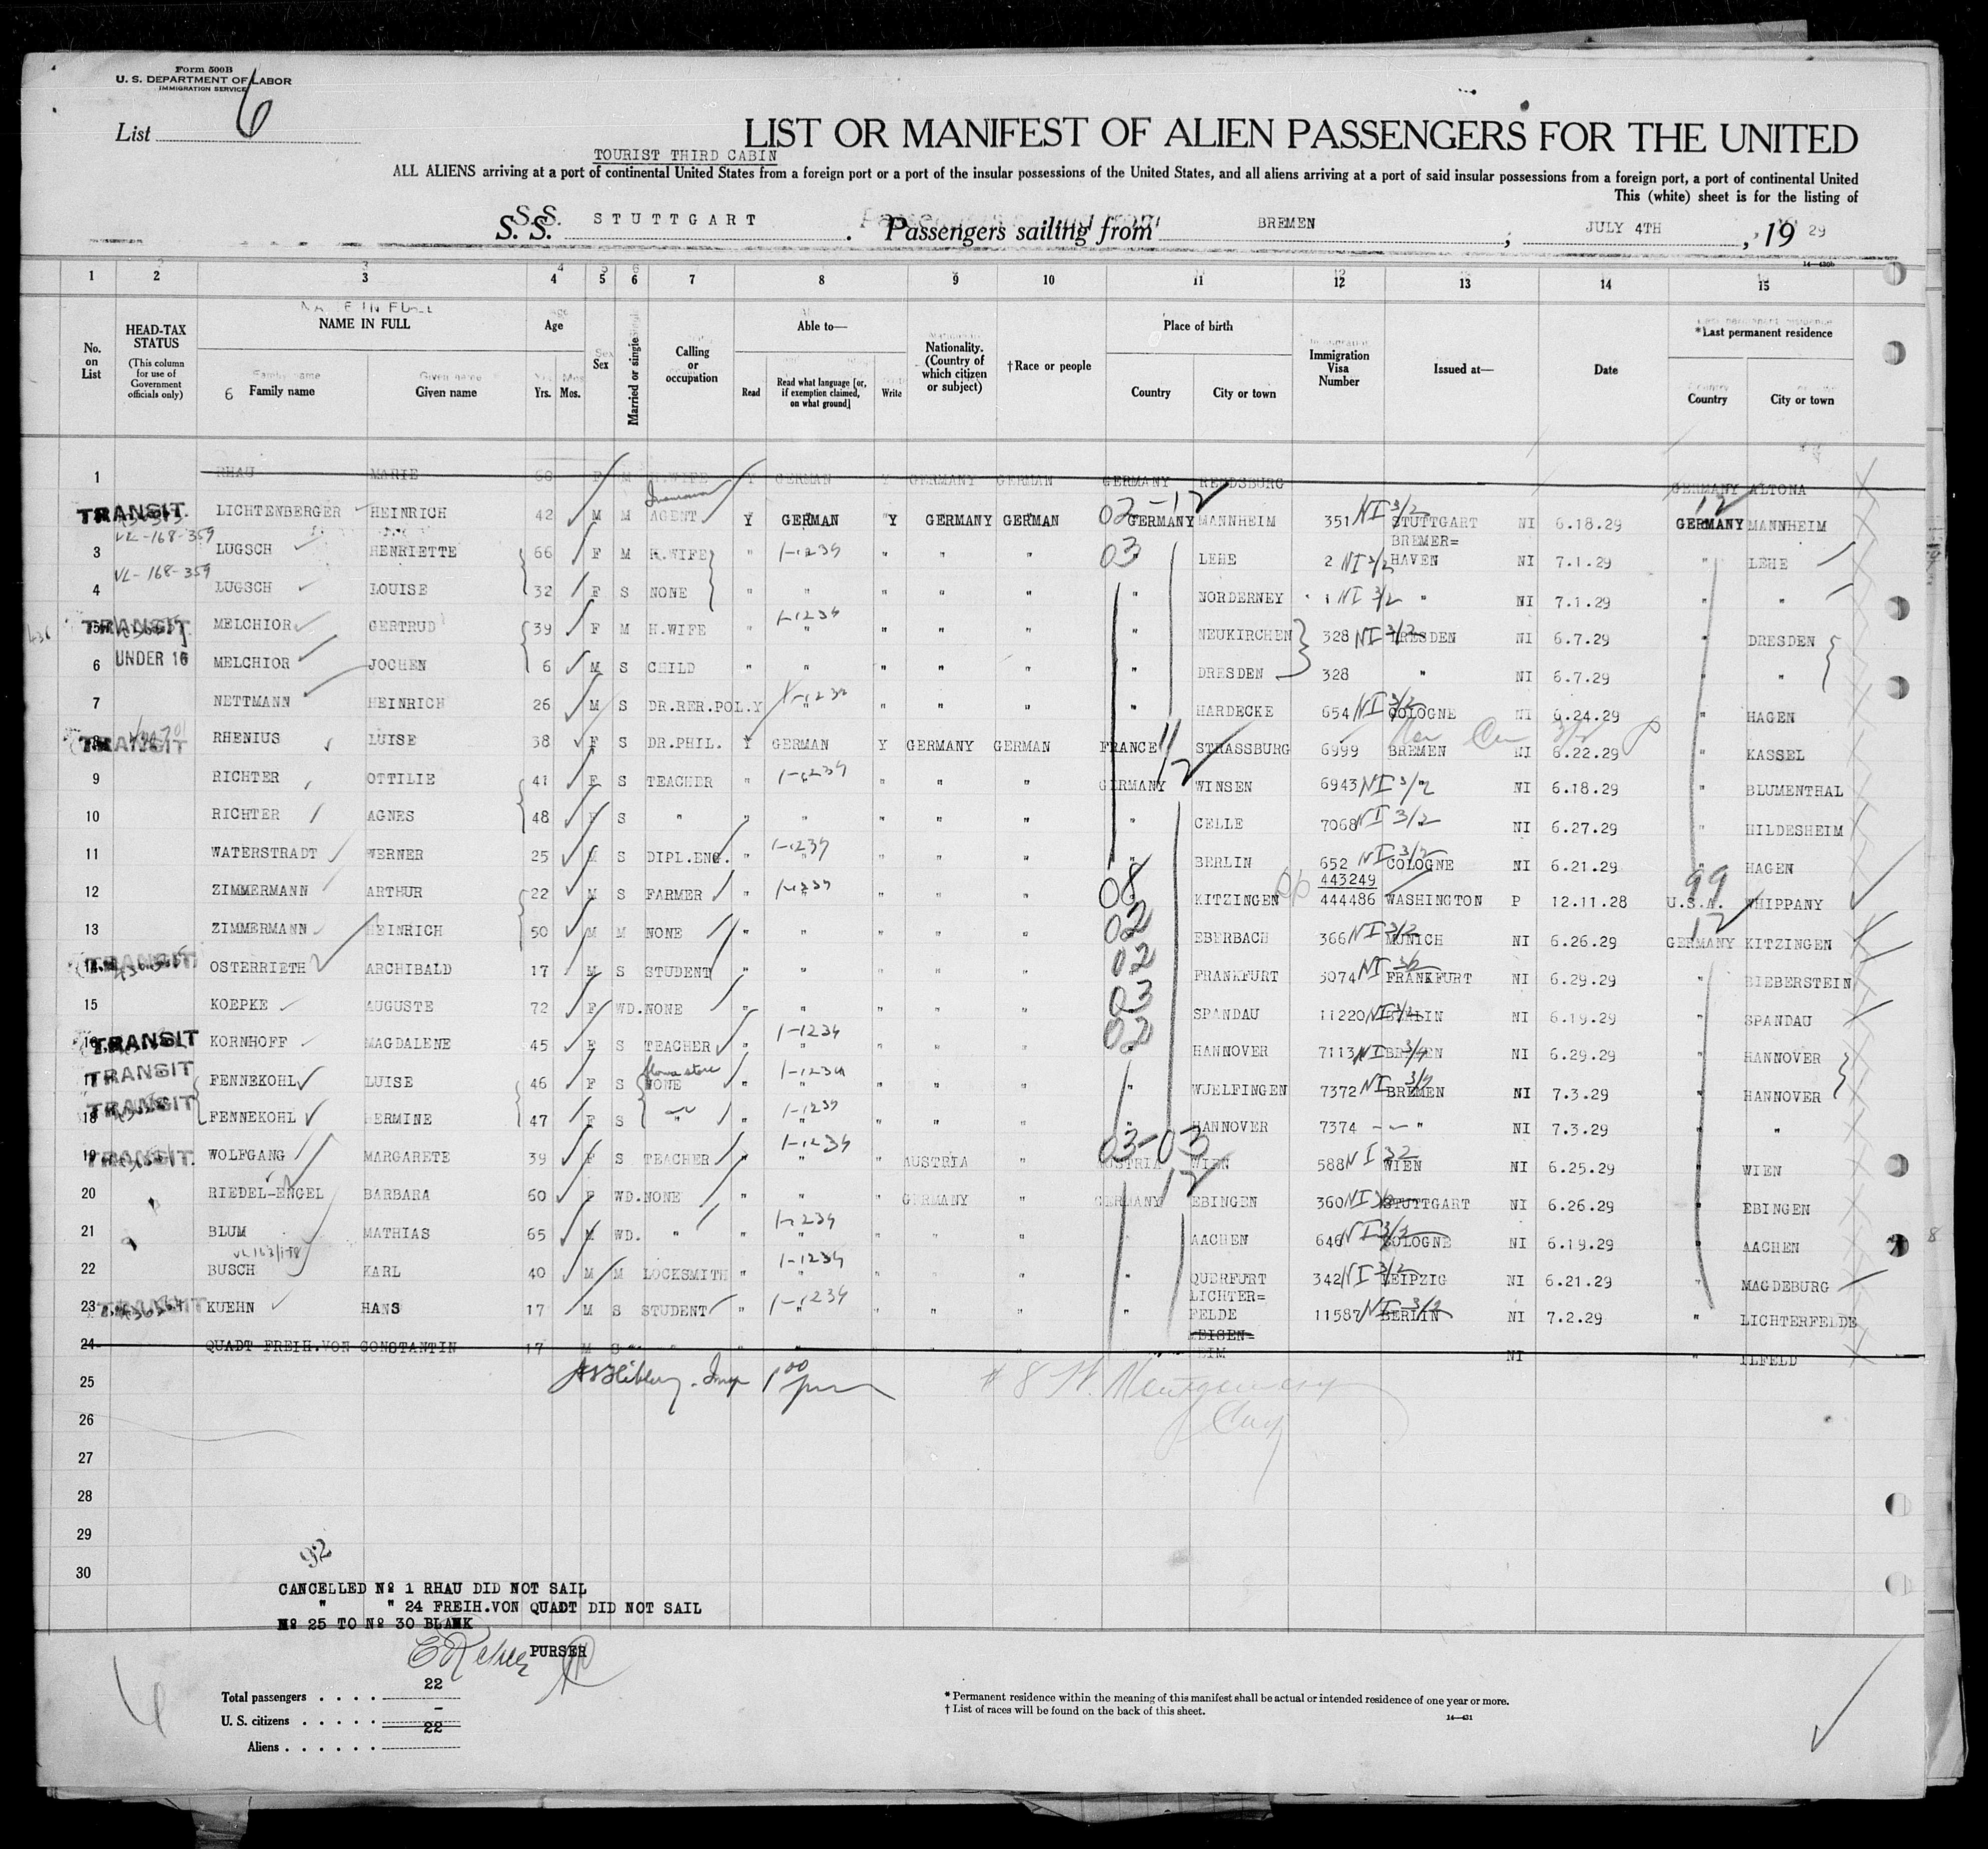 Form 500B
U. S. DEPARTMENT OF LABOR
IMMIGRATION SERVICE
List 6
LIST OR MANIFEST OF ALIEN PASSENGERS FOR THE UNITED
TOURIST THIRD CABIN
ALL ALIENS arriving at a port of continental United States from a foreign port or a port of the insular possessions of the United States, and all aliens arriving at a port of said insular possessions from a foreign port, a port of continental United
This (white) sheet is for the listing of
S. S. STUTTGART . Passengers sailing from BREMEN ; JULY 4TH , 19 29
14—430b
1 2 3 4 5 6 7 8 9 10 11 12 13 14 15
No. on List
HEAD-TAX STATUS (This column for use of Government officials only)
NAME IN FULL
6 Family name Given name
Age Yrs. Mos.
Sex
Married or single
Calling or occupation
Able to— Read Read what language [or, if exemption claimed, on what ground] Write
Nationality. (Country of which citizen or subject)
†Race or people
Place of birth Country City or town
Immigration Visa Number
Issued at—
Date
*Last permanent residence Country City or town
1 RHAU MARIE 60 F M H.WIFE Y GERMAN Y GERMANY GERMAN GERMANY RENDSBURG GERMANY ALTONA
02-12 12
TRANSIT LICHTENBERGER HEINRICH 42 M M AGENT Y GERMAN Y GERMANY GERMAN GERMANY MANNHEIM 351 NI 3/2 STUTTGART NI 6.18.29 GERMANY MANNHEIM
VL-168-359
3 LUGSCH HENRIETTE 66 F M H.WIFE " 1-1234 " " " 03 LEHE 2 NI 3/2 BREMER= HAVEN NI 7.1.29 " LEHE
VL-168-359
4 LUGSCH LOUISE 32 F S NONE " " " " " " NORDERNEY 1 NI 3/2 " NI 7.1.29 " "
TRANSIT 5 MELCHIOR GERTRUD 39 F M H.WIFE " 1-1234 " " " " " NEUKIRCHEN 328 NI 3/2 DRESDEN NI 6.7.29 " DRESDEN
6 UNDER 16 MELCHIOR JOCHEN 6 M S CHILD " " " " " " DRESDEN 328 " NI 6.7.29 " "
7 NETTMANN HEINRICH 26 M S DR.RER.POL. Y 1-1234 " " " " " HARDECKE 654 NI 3/2 COLOGNE NI 6.24.29 " HAGEN
TRANSIT RHENIUS LUISE 38 F S DR.PHIL. Y GERMAN Y GERMANY GERMAN FRANCE 11 STRASSBURG 6999 BREMEN NI 6.22.29 " KASSEL
9 RICHTER OTTILIE 41 F S TEACHER " 1-1234 " " " GERMANY 12 WINSEN 6943 NI 3/2 " NI 6.18.29 " BLUMENTHAL
10 RICHTER AGNES 48 F S " " " " " " " CELLE 7068 NI 3/2 NI 6.27.29 " HILDESHEIM
11 WATERSTRADT WERNER 25 M S DIPL.ENG. " 1-1234 " " " " " BERLIN 652 NI 3/2 COLOGNE NI 6.21.29 " HAGEN
443249
12 ZIMMERMANN ARTHUR 22 M S FARMER " 1-1234 " " " 08 KITZINGEN 444486 WASHINGTON P 12.11.28 99 U.S.A. WHIPPANY
13 ZIMMERMANN HEINRICH 50 M M NONE " " " " " 02 EBERBACH 366 NI 3/2 MUNICH NI 6.26.29 12 GERMANY KITZINGEN
TRANSIT OSTERRIETH ARCHIBALD 17 M S STUDENT " " " " " 02 FRANKFURT 5074 NI 3/2 FRANKFURT NI 6.29.29 " BIEBERSTEIN
15 KOEPKE AUGUSTE 72 F WD. NONE " " " " " 03 SPANDAU 11220 NI 3/2 BERLIN NI 6.19.29 " SPANDAU
TRANSIT KORNHOFF MAGDALENE 45 F S TEACHER " 1-1234 " " " " 02 HANNOVER 7113 NI 3/2 BREMEN NI 6.29.29 " HANNOVER
TRANSIT FENNEKOHL LUISE 46 F S NONE " 1-1234 " " " " " WUELFINGEN 7372 NI 3/2 BREMEN NI 7.3.29 " HANNOVER
TRANSIT 18 FENNEKOHL HERMINE 47 F S " " 1-1234 " " " " " HANNOVER 7374 " NI 7.3.29 " "
TRANSIT 19 WOLFGANG MARGARETE 39 F S TEACHER " 1-1234 " " AUSTRIA " 03-03 AUSTRIA WIEN 588 NI 3/2 WIEN NI 6.25.29 " WIEN
20 RIEDEL-ENGEL BARBARA 60 F WD. NONE " " " GERMANY " GERMANY 12 EBINGEN 360 NI 3/2 STUTTGART NI 6.26.29 " EBINGEN
21 BLUM MATHIAS 65 M WD. " " 1-1234 " " " " " AACHEN 646 NI 3/2 COLOGNE NI 6.19.29 " AACHEN
22 BUSCH KARL 40 M M LOCKSMITH " 1-1234 " " " " " QUERFURT 342 NI 3/2 LEIPZIG NI 6.21.29 " MAGDEBURG
23 TRANSIT KUEHN HANS 17 M S STUDENT " 1-1234 " " " " " LICHTER= FELDE 11587 NI 3/2 BERLIN NI 7.2.29 " LICHTERFELDE
24 QUADT FREIH.VON CONSTANTIN 17 M S " " " " " " NI " ILFELD
25
26
27
28
29
30
92
CANCELLED Nº 1 RHAU DID NOT SAIL
" " 24 FREIH.VON QUADT DID NOT SAIL
Nº 25 TO Nº 30 BLANK
PURSER
Total passengers . . . . 22
U. S. citizens . . . . . –
Aliens . . . . . . 22
* Permanent residence within the meaning of this manifest shall be actual or intended residence of one year or more.
† List of races will be found on the back of this sheet.
14—431